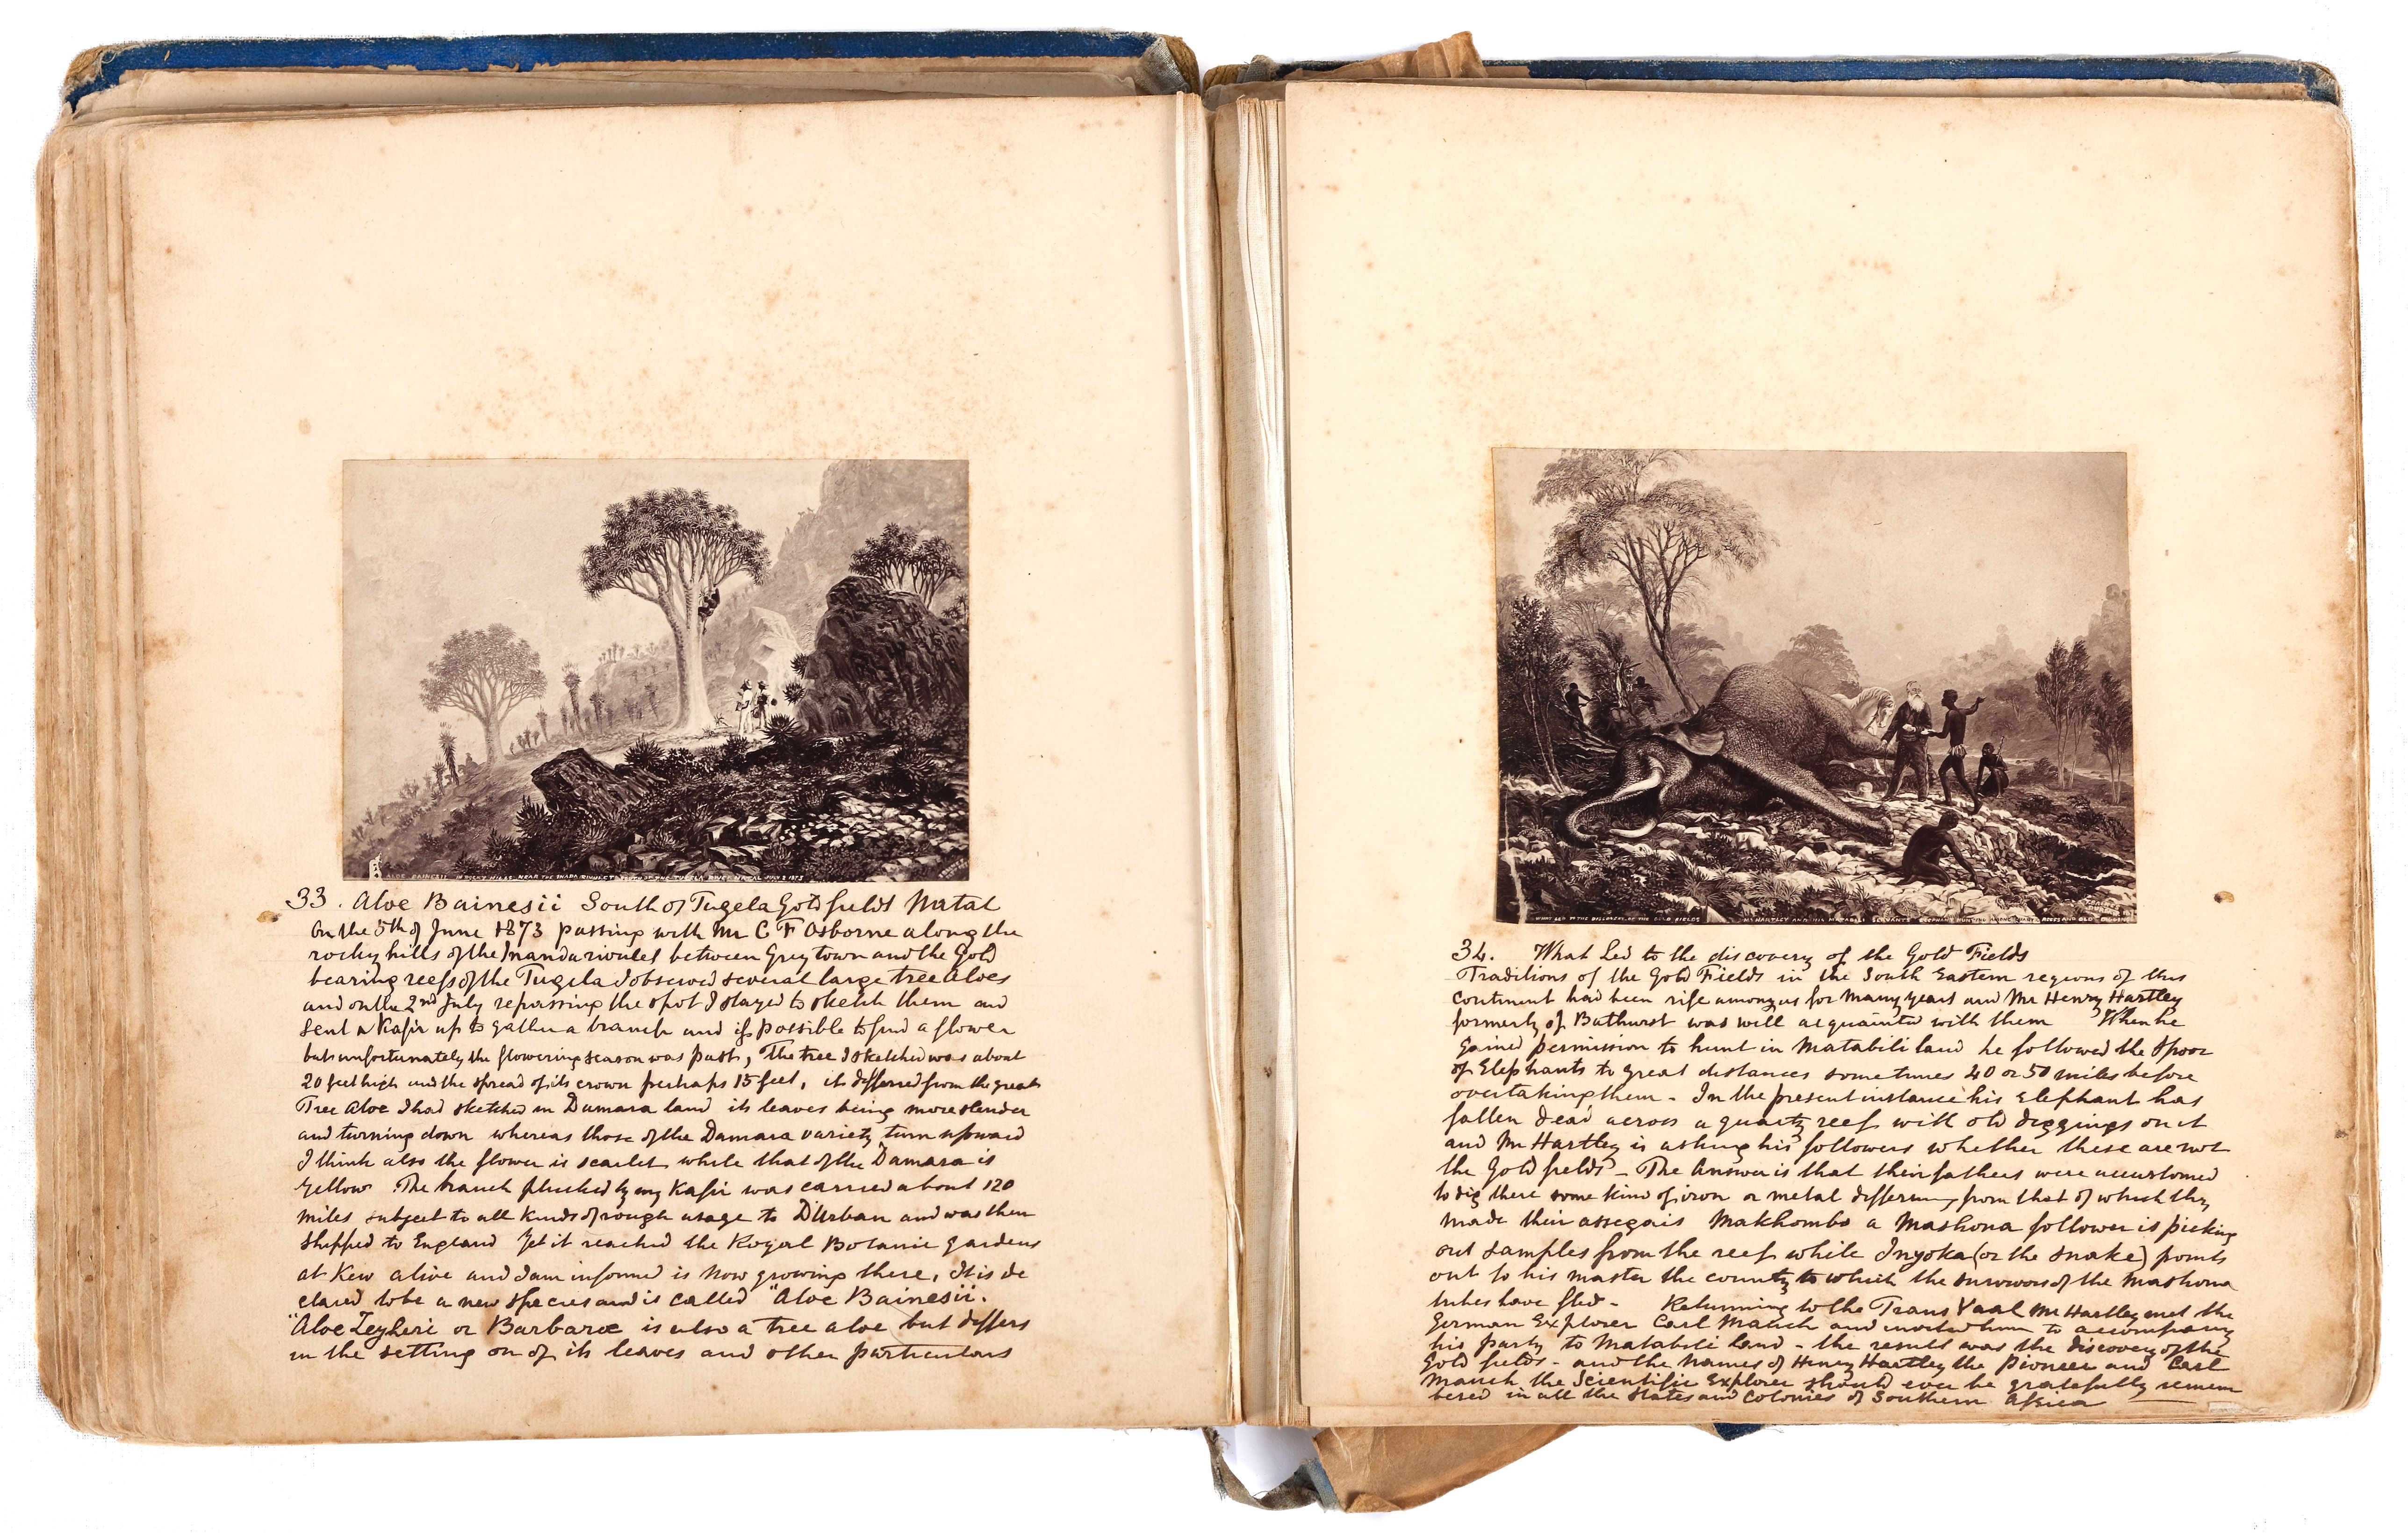 ALOE BAINESII IN ROCKY HILLS NEAR THE INADA RIVULET SOUTH OF THE TUGELA RIVER NATAL JULY 2 1873
33. Aloe Bainesii South of Tugela Gold fields Natal
On the 5th of June 1873 passing with Mr C F Osborne along the
rocky hills of the Inanda rivulet between Grey town and the Gold
bearing reefs of the Tugela I observed several large tree Aloes
and on the 2nd July repassing the spot I stayed to sketch them and
sent a Kafir up to gather a branch and if possible to find a flower
but unfortunately the flowering season was past, The tree I sketched was about
20 feet high and the spread of its crown perhaps 15 feet, it differed from the great
Tree Aloe I had sketched in Damara land its leaves being more slender
and turning down whereas those of the Damara variety turn upward
I think also the flower is scarlet while that of the Damara is
yellow. The branch plucked by my Kafir was carried about 120
miles subject to all kinds of rough usage to D'Urban and was then
shipped to England Yet it reached the Royal Botanic gardens
at Kew alive and I am informed is now growing there, It is de
clared to be a new species and is called "Aloe Bainesii.
"Aloe Zeyheri or Barbarae is also a tree aloe but differs
in the setting on of its leaves and other particulars
WHAT LED TO THE DISCOVERY OF THE GOLD FIELDS MR HARTLEY AND HIS MATABILI SERVANTS ELEPHANT HUNTING AMONG QUARTZ REEFS AND OLD DIGGINGS
34. What Led to the discovery of the Gold Fields
Traditions of the Gold Fields in the South Eastern regions of this
continent had been rife among us for many years and Mr Henry Hartley
formerly of Bathurst was well acquainted with them When he
gained permission to hunt in Matabili land he followed the spoor
of Elephants to great distances sometimes 40 or 50 miles before
overtaking them - In the present instance his Elephant has
fallen dead across a quartz reef with old diggings on it
and Mr Hartley is asking his followers whether these are not
the Gold fields - The Answer is that their fathers were accustomed
to dig there some kind of iron or metal differing from that of which they
made their assegais Makhombo a Mashona follower is picking
out samples from the reef while Inyoka (or the snake) points
out to his master the country to which the survivors of the Mashona
tribes have fled - Returning to the Trans Vaal Mr Hartley met the
German Explorer Carl Mauch and invited him to accompany
his party to Matabili land - the result was the discovery of the
Gold fields - and the names of Henry Hartley the Pioneer and Carl
Mauch the Scientific Explorer should ever be gratefully remem
bered in all the States and Colonies of Southern Africa